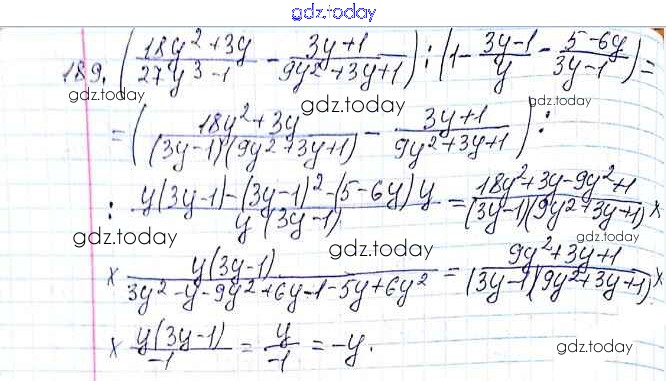 gdz.today
189. ((18y²+3y)/(27y³-1) - (3y+1)/(9y²+3y+1)) : (1 - (3y-1)/y - (5-6y)/(3y-1)) =
gdz.today gdz.today gdz.today
= ((18y²+3y)/((3y-1)(9y²+3y+1)) - (3y+1)/(9y²+3y+1)) :
: (y(3y-1)-(3y-1)²-(5-6y)y)/(y(3y-1)) = (18y²+3y-9y²+1)/((3y-1)(9y²+3y+1)) ×
gdz.today gdz.today gdz.today
× (y(3y-1))/(3y²-y-9y²+6y-1-5y+6y²) = (9y²+3y+1)/((3y-1)(9y²+3y+1)) ×
× (y(3y-1))/(-1) = y/(-1) = -y.
gdz.today gdz.today gdz.today